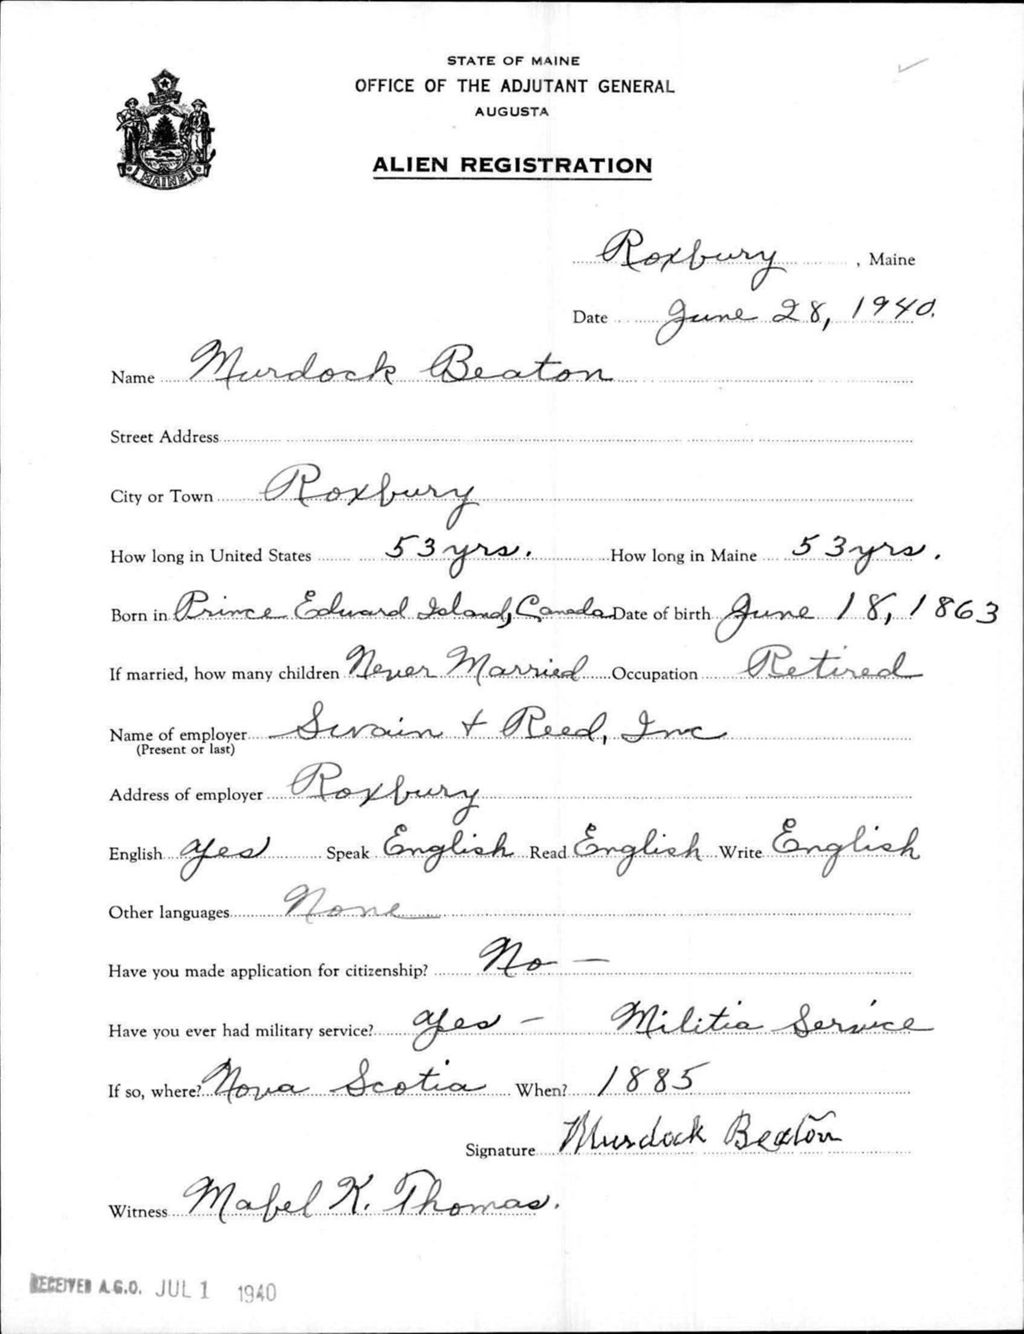 STATE OF MAINE
OFFICE OF THE ADJUTANT GENERAL
AUGUSTA
MAINE
ALIEN REGISTRATION
Roxbury, Maine
Date June 28, 1940.
Name Murdock Beaton
Street Address
City or Town Roxbury
How long in United States 53 yrs. How long in Maine 53 yrs.
Born in Prince Edward Island, Canada Date of birth June 18, 1863
If married, how many children Never Married Occupation Retired
Name of employer Swain + Reed, Inc
(Present or last)
Address of employer Roxbury
English Yes Speak English Read English Write English
Other languages None
Have you made application for citizenship? No —
Have you ever had military service? Yes – Militia Service
If so, where? Nova Scotia When? 1885
Signature Murdock Beaton
Witness Mabel K. Thomas.
RECEIVED A.G.O. JUL 1 1940